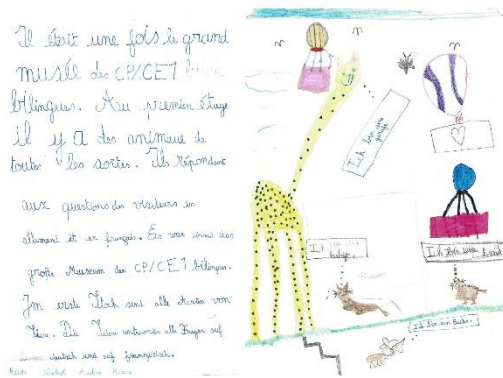 Il était une fois le grand
musée des CP/CE1
bilingues. Au premier étage
il y a des animaux de
toutes les sortes. Ils répondent
aux questions des visiteurs en
allemand et en français. Es war einmal das
große Museum der CP/CE1 bilingues.
Im erste Stock sind alle Arten von
Tiere. Die Tiere antworten alle Fragen auf
deutsch und auf französisch.
Ich bin eine
giraffe
Ich bin
Ich bin ein
Ich bin ein